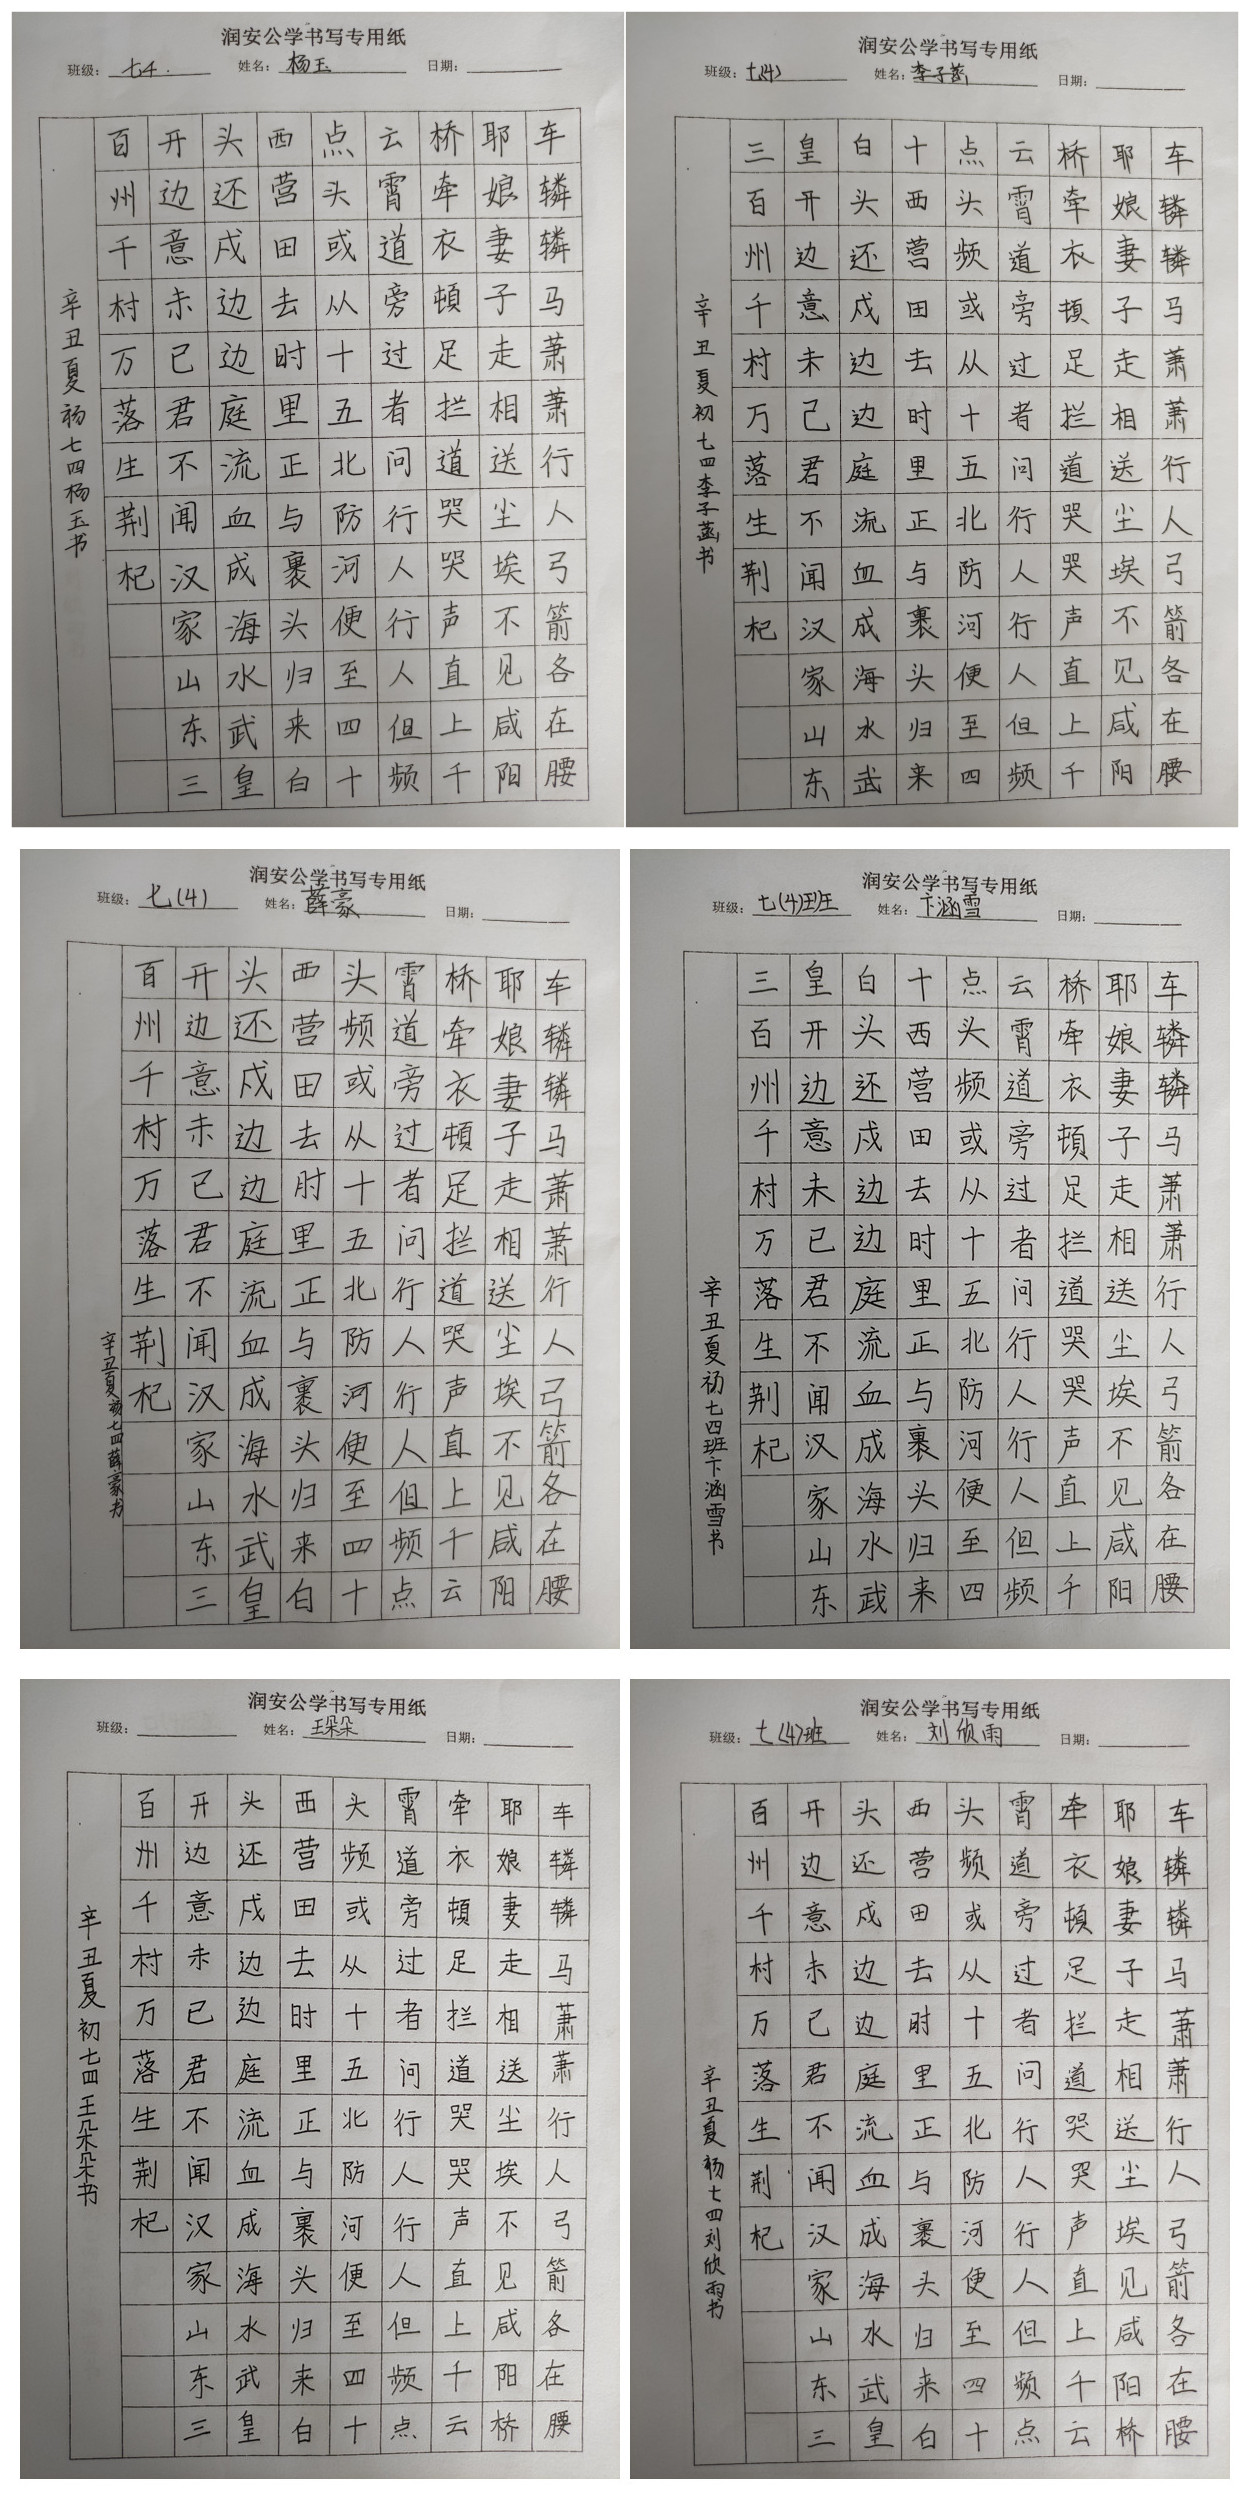 润安公学书写专用纸
班级：七4. 姓名：杨玉 日期：
车辚辚马萧萧行人弓箭各在腰
耶娘妻子走相送尘埃不见咸阳
桥牵衣頓足拦道哭哭声直上千
云霄道旁过者问行人行人但频
点头或从十五北防河便至四十
西营田去时里正与裹头归来白
头还戍边边庭流血成海水武皇
开边意未已君不闻汉家山东三
百州千村万落生荆杞
辛丑夏初七四杨玉书
润安公学书写专用纸
班级：七(4) 姓名：李子菡 日期：
车辚辚马萧萧行人弓箭各在腰
耶娘妻子走相送尘埃不见咸阳
桥牵衣頓足拦道哭哭声直上千
云霄道旁过者问行人行人但频
点头频或从十五北防河便至四
十西营田去时里正与裹头归来
白头还戍边边庭流血成海水武
皇开边意未己君不闻汉家山东
三百州千村万落生荆杞
辛丑夏初七四李子菡书
润安公学书写专用纸
班级：七(4) 姓名：薛豪 日期：
车辚辚马萧萧行人弓箭各在腰
耶娘妻子走相送尘埃不见咸阳
桥牵衣頓足拦道哭声直上千云
霄道旁过者问行人行人但频点
头频或从十五北防河便至四十
西营田去时里正与裹头归来白
头还戍边边庭流血成海水武皇
开边意未已君不闻汉家山东三
百州千村万落生荆杞
辛丑夏初七四薛豪书
润安公学书写专用纸
班级：七(4)班 姓名：卞涵雪 日期：
车辚辚马萧萧行人弓箭各在腰
耶娘妻子走相送尘埃不见咸阳
桥牵衣頓足拦道哭哭声直上千
云霄道旁过者问行人行人但频
点头频或从十五北防河便至四
十西营田去时里正与裹头归来
白头还戍边边庭流血成海水武
皇开边意未已君不闻汉家山东
三百州千村万落生荆杞
辛丑夏初七四班卞涵雪书
润安公学书写专用纸
班级： 姓名：王朵朵 日期：
车辚辚马萧萧行人弓箭各在腰
耶娘妻走相送尘埃不见咸阳桥
牵衣頓足拦道哭哭声直上千云
霄道旁过者问行人行人但频点
头频或从十五北防河便至四十
西营田去时里正与裹头归来白
头还戍边边庭流血成海水武皇
开边意未已君不闻汉家山东三
百州千村万落生荆杞
辛丑夏初七四王朵朵书
润安公学书写专用纸
班级：七(4)班 姓名：刘欣雨 日期：
车辚辚马萧萧行人弓箭各在腰
耶娘妻子走相送尘埃见咸阳桥
牵衣頓足拦道哭哭声直上千云
霄道旁过者问行人行人但频点
头频或从十五北防河便至四十
西营田去时里正与裹头归来白
头还戍边边庭流血成海水武皇
开边意未已君不闻汉家山东三
百州千村万落生荆杞
辛丑夏初七四刘欣雨书